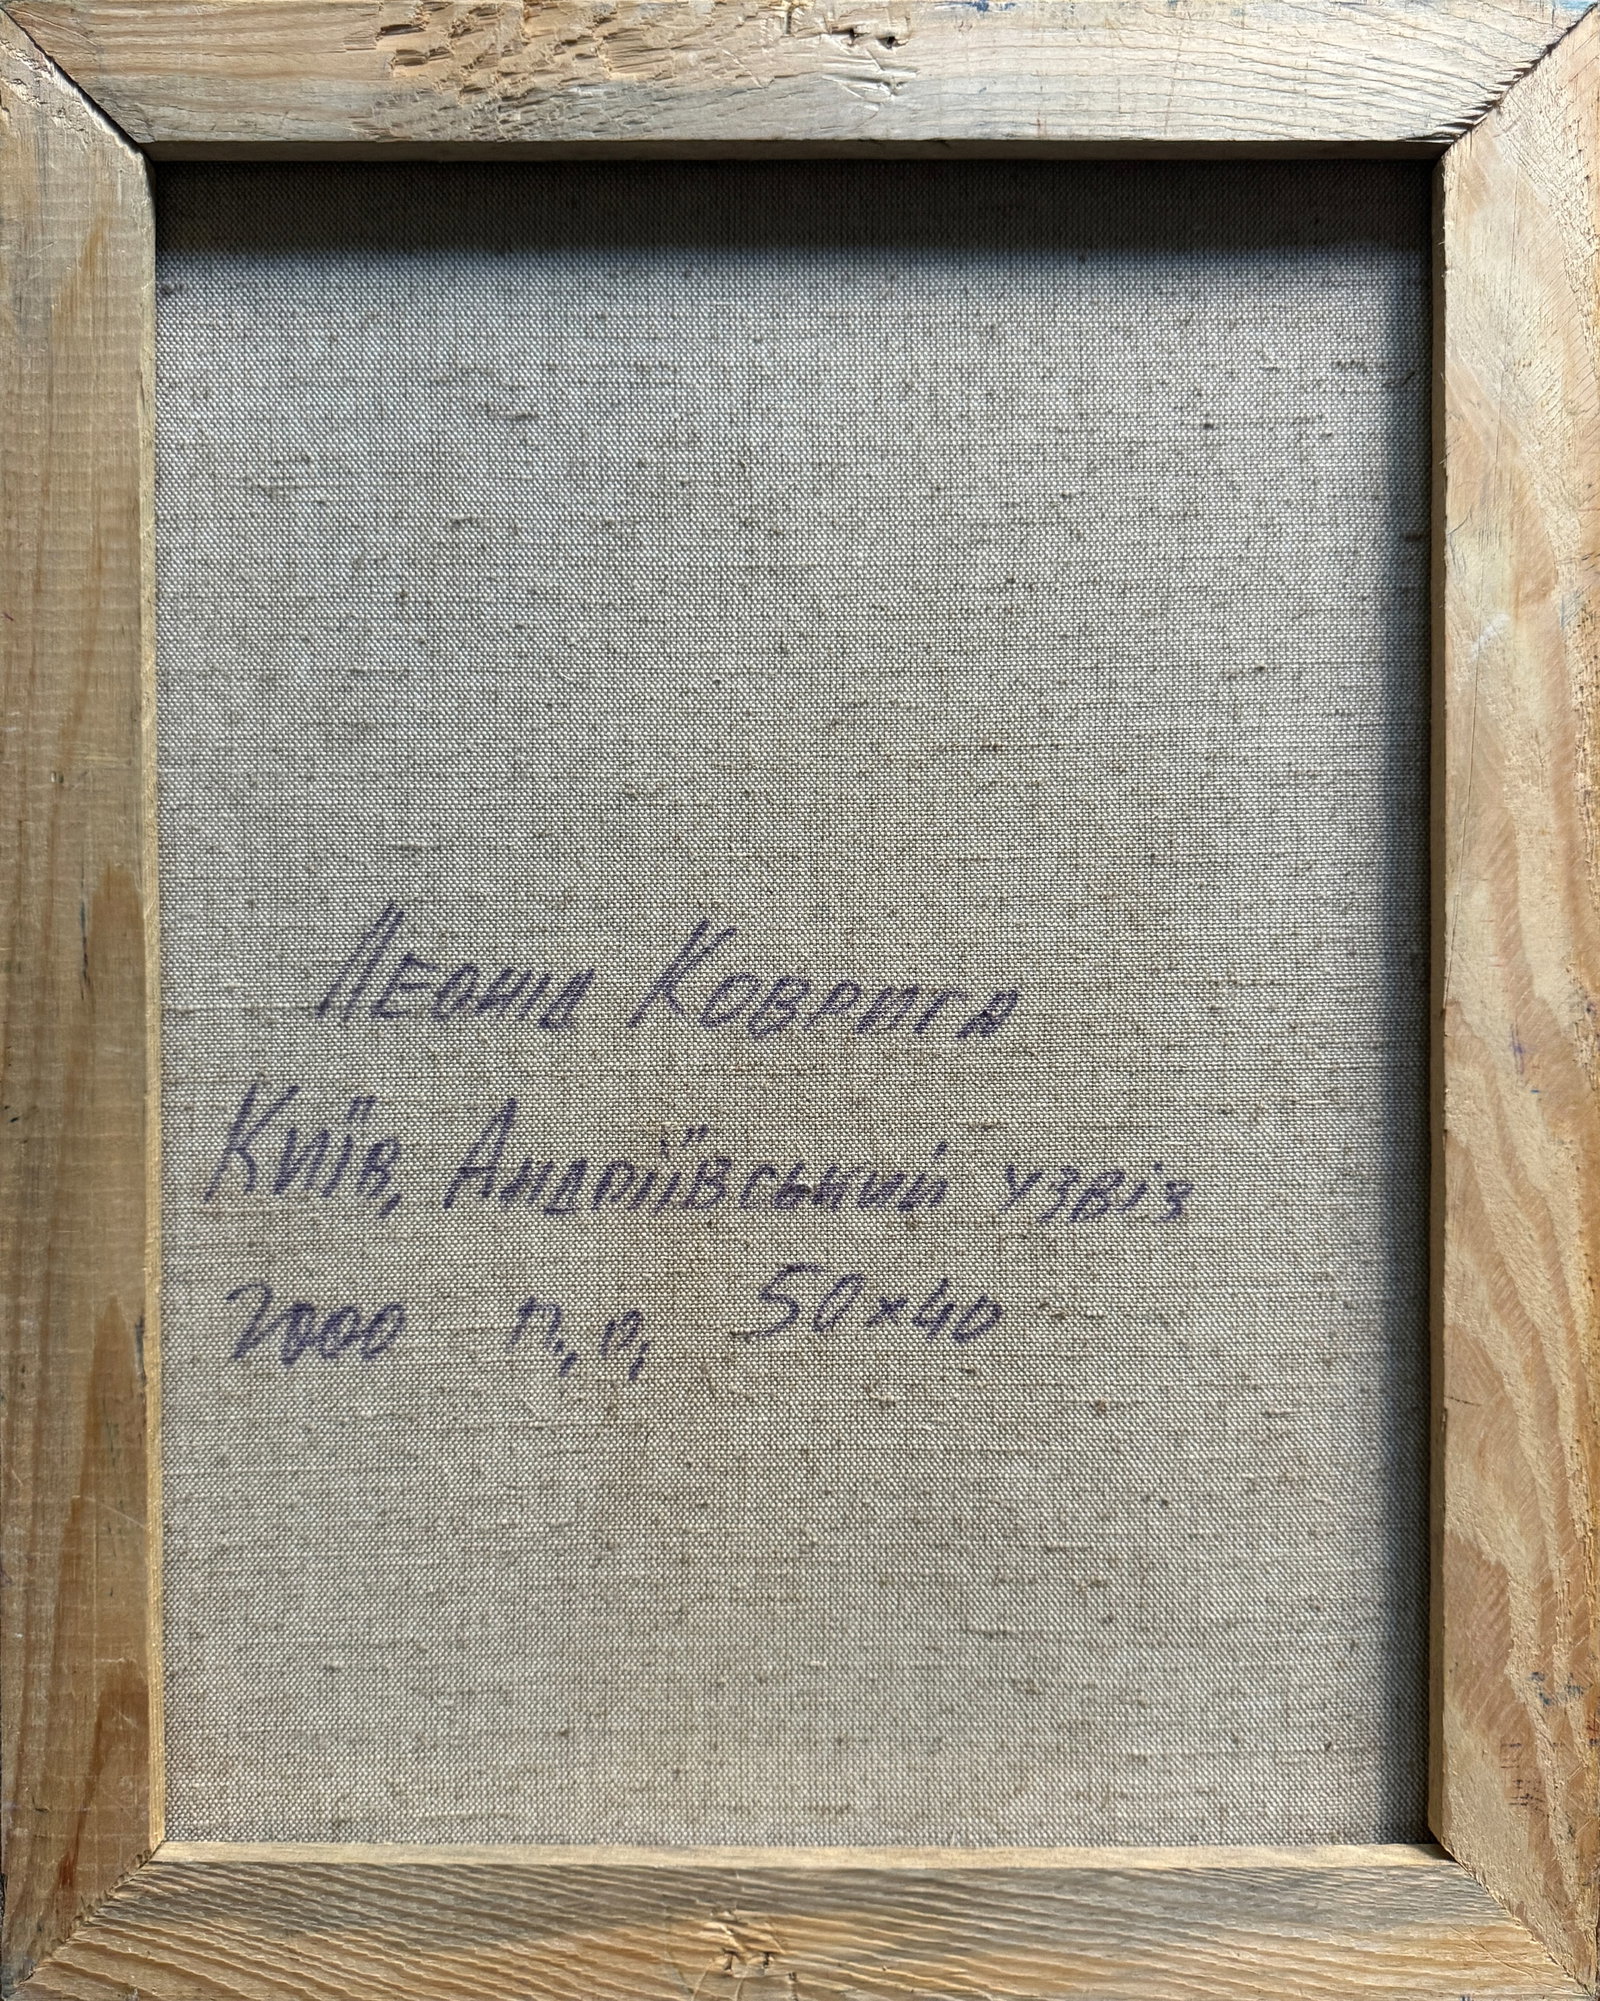 Леонід Коврига
Київ, Андріївський узвіз
2000 п., о, 50х40